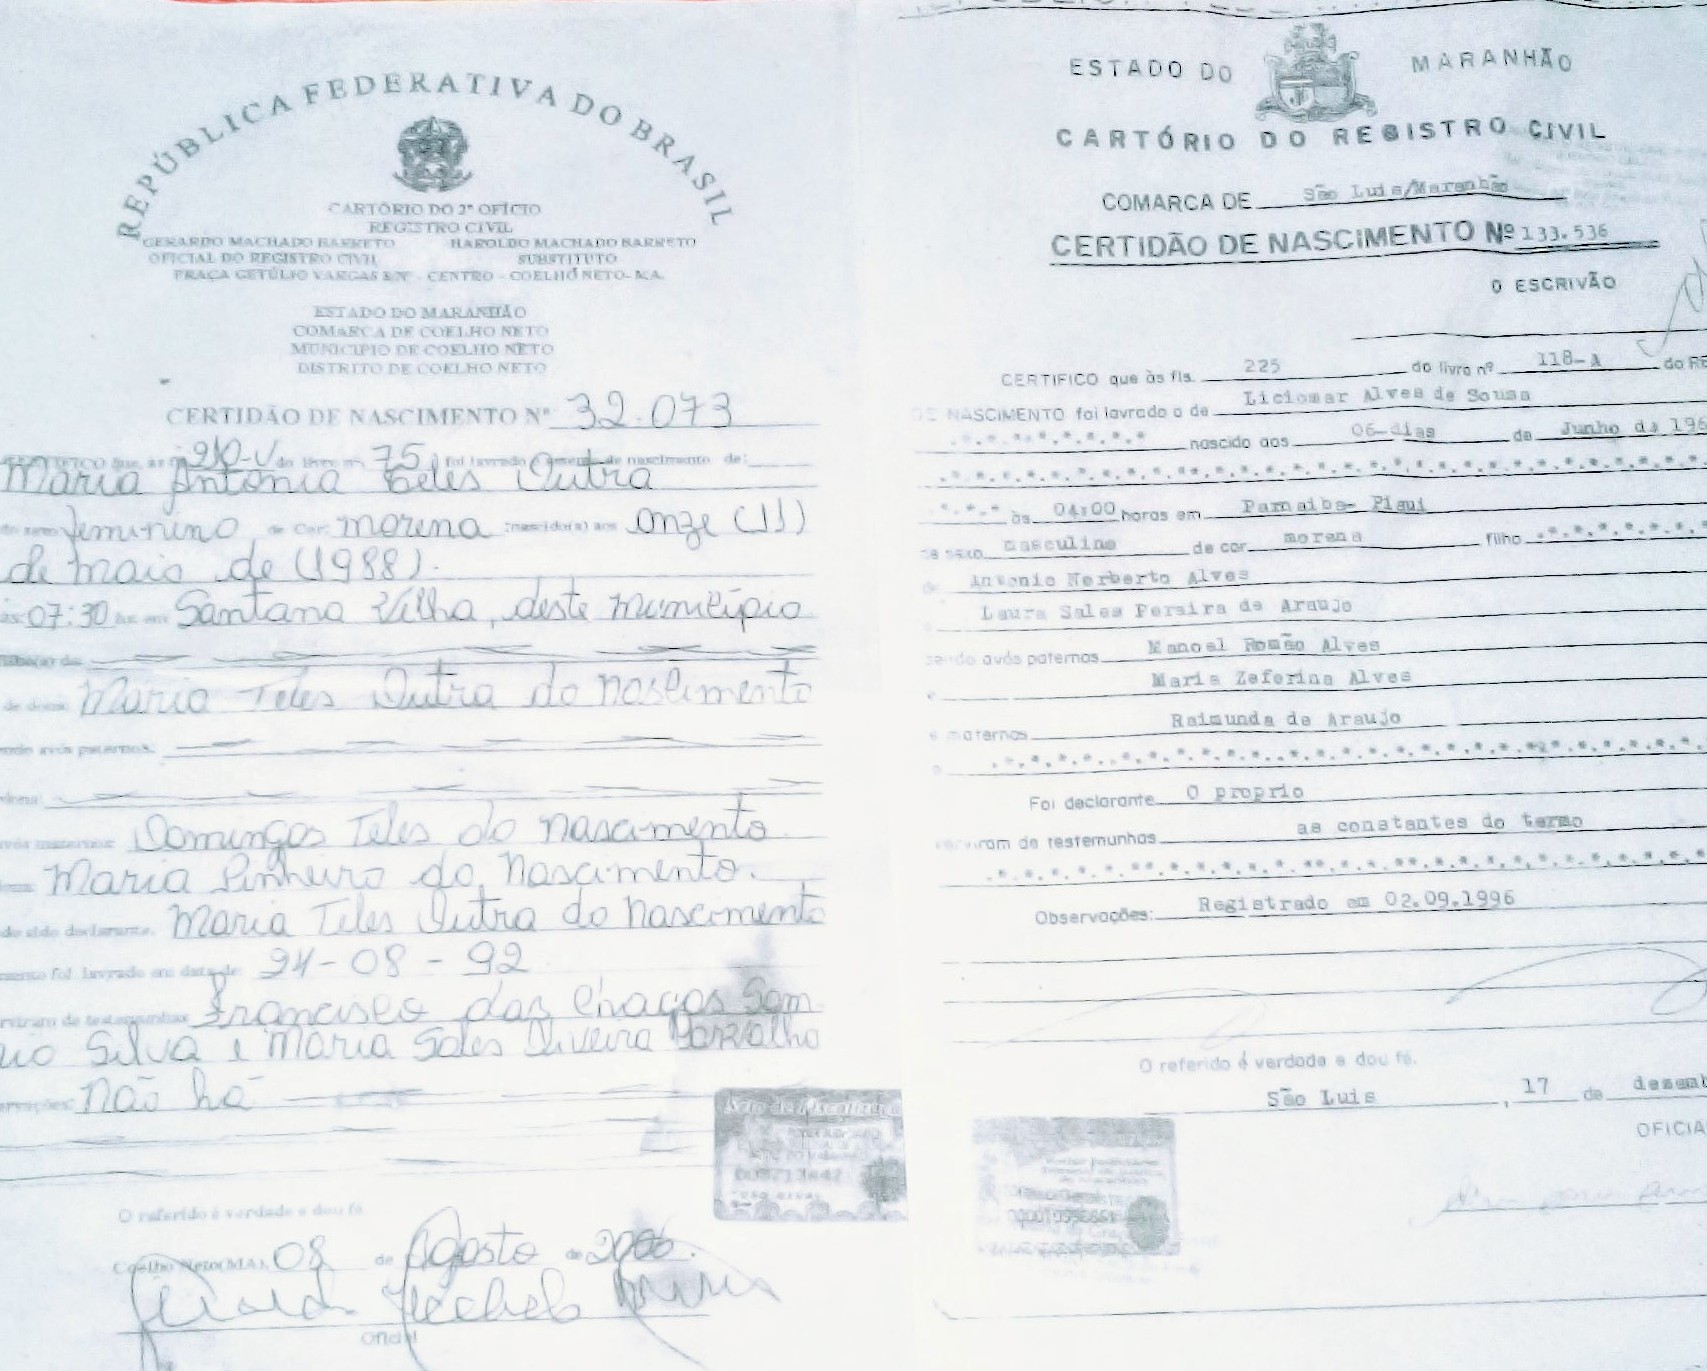 REPÚBLICA FEDERATIVA DO BRASIL
CARTÓRIO DO 2º OFÍCIO
REGISTRO CIVIL
GERARDO MACHADO BARRETO HAROLDO MACHADO BARRETO
OFICIAL DO REGISTRO CIVIL SUBSTITUTO
PRAÇA GETÚLIO VARGAS S/Nº - CENTRO - COELHO NETO-MA.
ESTADO DO MARANHÃO
COMARCA DE COELHO NETO
MUNICIPIO DE COELHO NETO
DISTRITO DE COELHO NETO
CERTIDÃO DE NASCIMENTO Nº 32.073
que, as do livro nº 75, foi lavrado o de nascimento de:
Maria Antonia Teles Dutra
do sexo feminino, de Cor: morena nascido(a) aos onze (11)
de maio de (1988).
às 07:30 hs em Santana Velha, deste município
de dona Maria Teles Dutra do nascimento
avós paternos:
Domingos Teles do nascimento
Maria Pinheiro do Nascimento.
do sido declarante. Maria Teles Dutra do nascimento
mento foi lavrado em data de 24-08-92
Francisco das Chagas Sam
uio Silva e Maria Sales Oliveira Carvalho
ervações: não há
O referido é verdade e dou fé
Coelho Neto(MA), 08 de Agosto de 2006.
Oficial
ESTADO DO MARANHÃO
CARTÓRIO DO REGISTRO CIVIL
COMARCA DE São Luis/Maranhão
CERTIDÃO DE NASCIMENTO Nº 133.536
O ESCRIVÃO
CERTIFICO que às fls. 225 do livro nº 118-A do RE
DE NASCIMENTO foi lavrado o de Liciomar Alves de Sousa
nascido aos 06-dias de Junho de 196
às 04:00 horas em Parnaiba- Piaui
masculino de cor morena filho
Antonio Norberto Alves
Laura Sales Pereira de Araujo
avós paternos Manoel Romão Alves
Maria Zeferina Alves
maternos Raimunda de Araujo
Foi declarante O proprio
de testemunhas as constantes do termo
Observações: Registrado em 02.09.1996
O referido é verdade e dou fé.
São Luis, 17 de dezemb
OFICIA